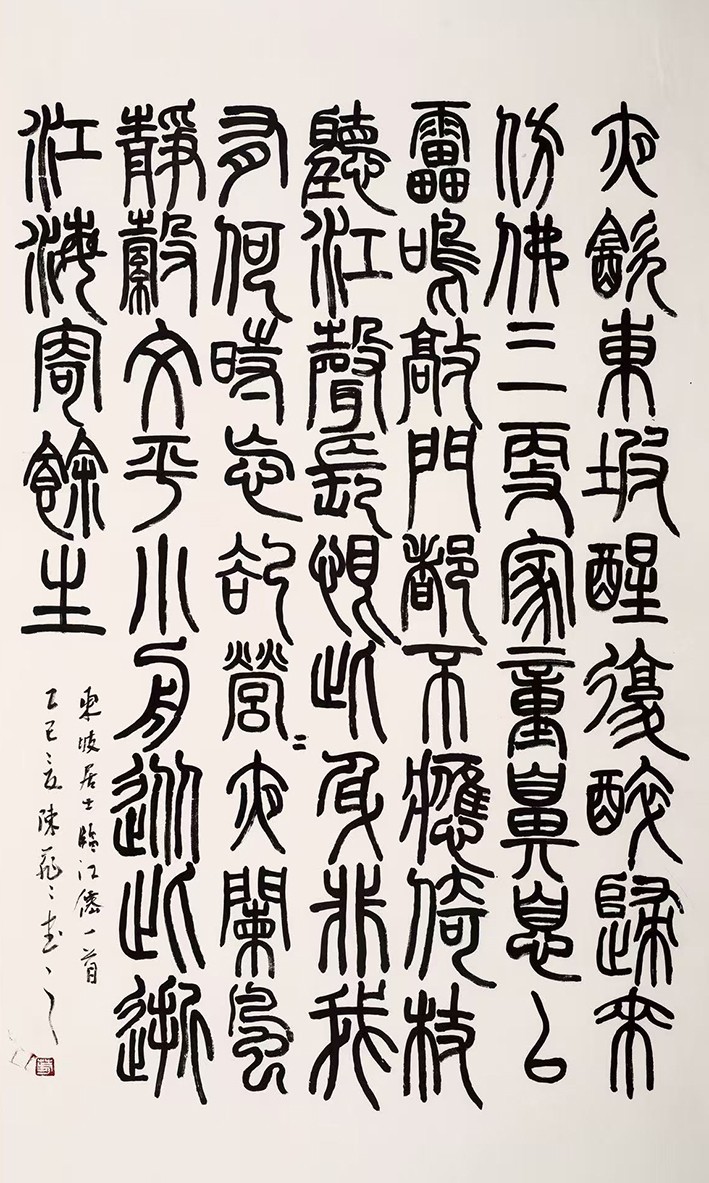 夜飲東坡醒復醉歸來
仿佛三更家童鼻息已
雷鳴敲門都不應倚杖
聽江聲長恨此身非我
有何時忘却營〻夜闌風
靜縠文平小舟從此逝
江海寄餘生
東坡居士臨江僊一首
乙巳夏陳